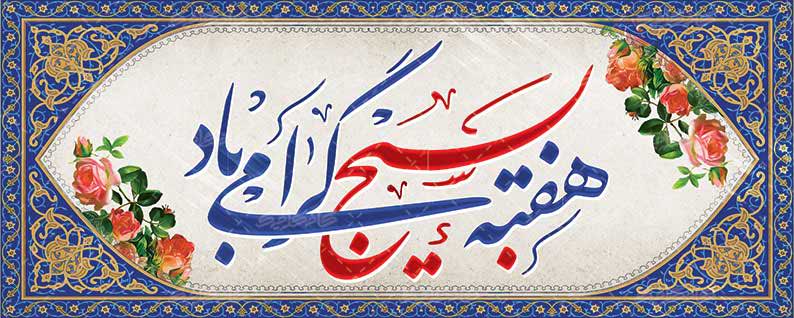 هفته بسیج گرامی باد